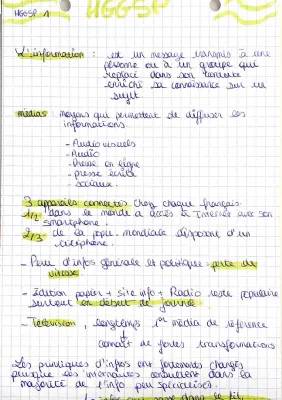 HGGSP
HGGSP 1
L'information : est un message transmis à une
personne ou à un groupe qui
replacé dans son contexte
enrichi sa connaissance sur un
sujet
médias : moyens qui permettent de diffuser les
informations.
- Audiovisuels
- Audio
- Presse en ligne
- presse écrite
- sociaux.
3 appareils connectés chez chaque français.
1/2 dans le monde a accès à Internet avec son
smartphone.
2/3 de la popu. mondiale dispose d'un
téléphone.
- Peu d'infos générale et politique : perte de
vitesse
- Edition papier + site info + Radio reste populaire
surtout en début de journée
- Télévision, longtemps 1er média de référence
connait de fortes transformations
Les pratiques d'infos ont fortement changés
puisque les internautes consultent dans la
majorité de l'info peu spécialisées.